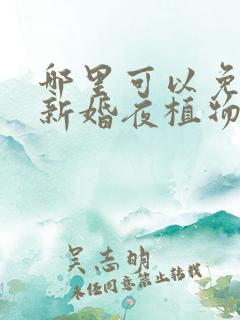 哪里可以免
新婚夜植物
吴志明
未经同意禁止转载